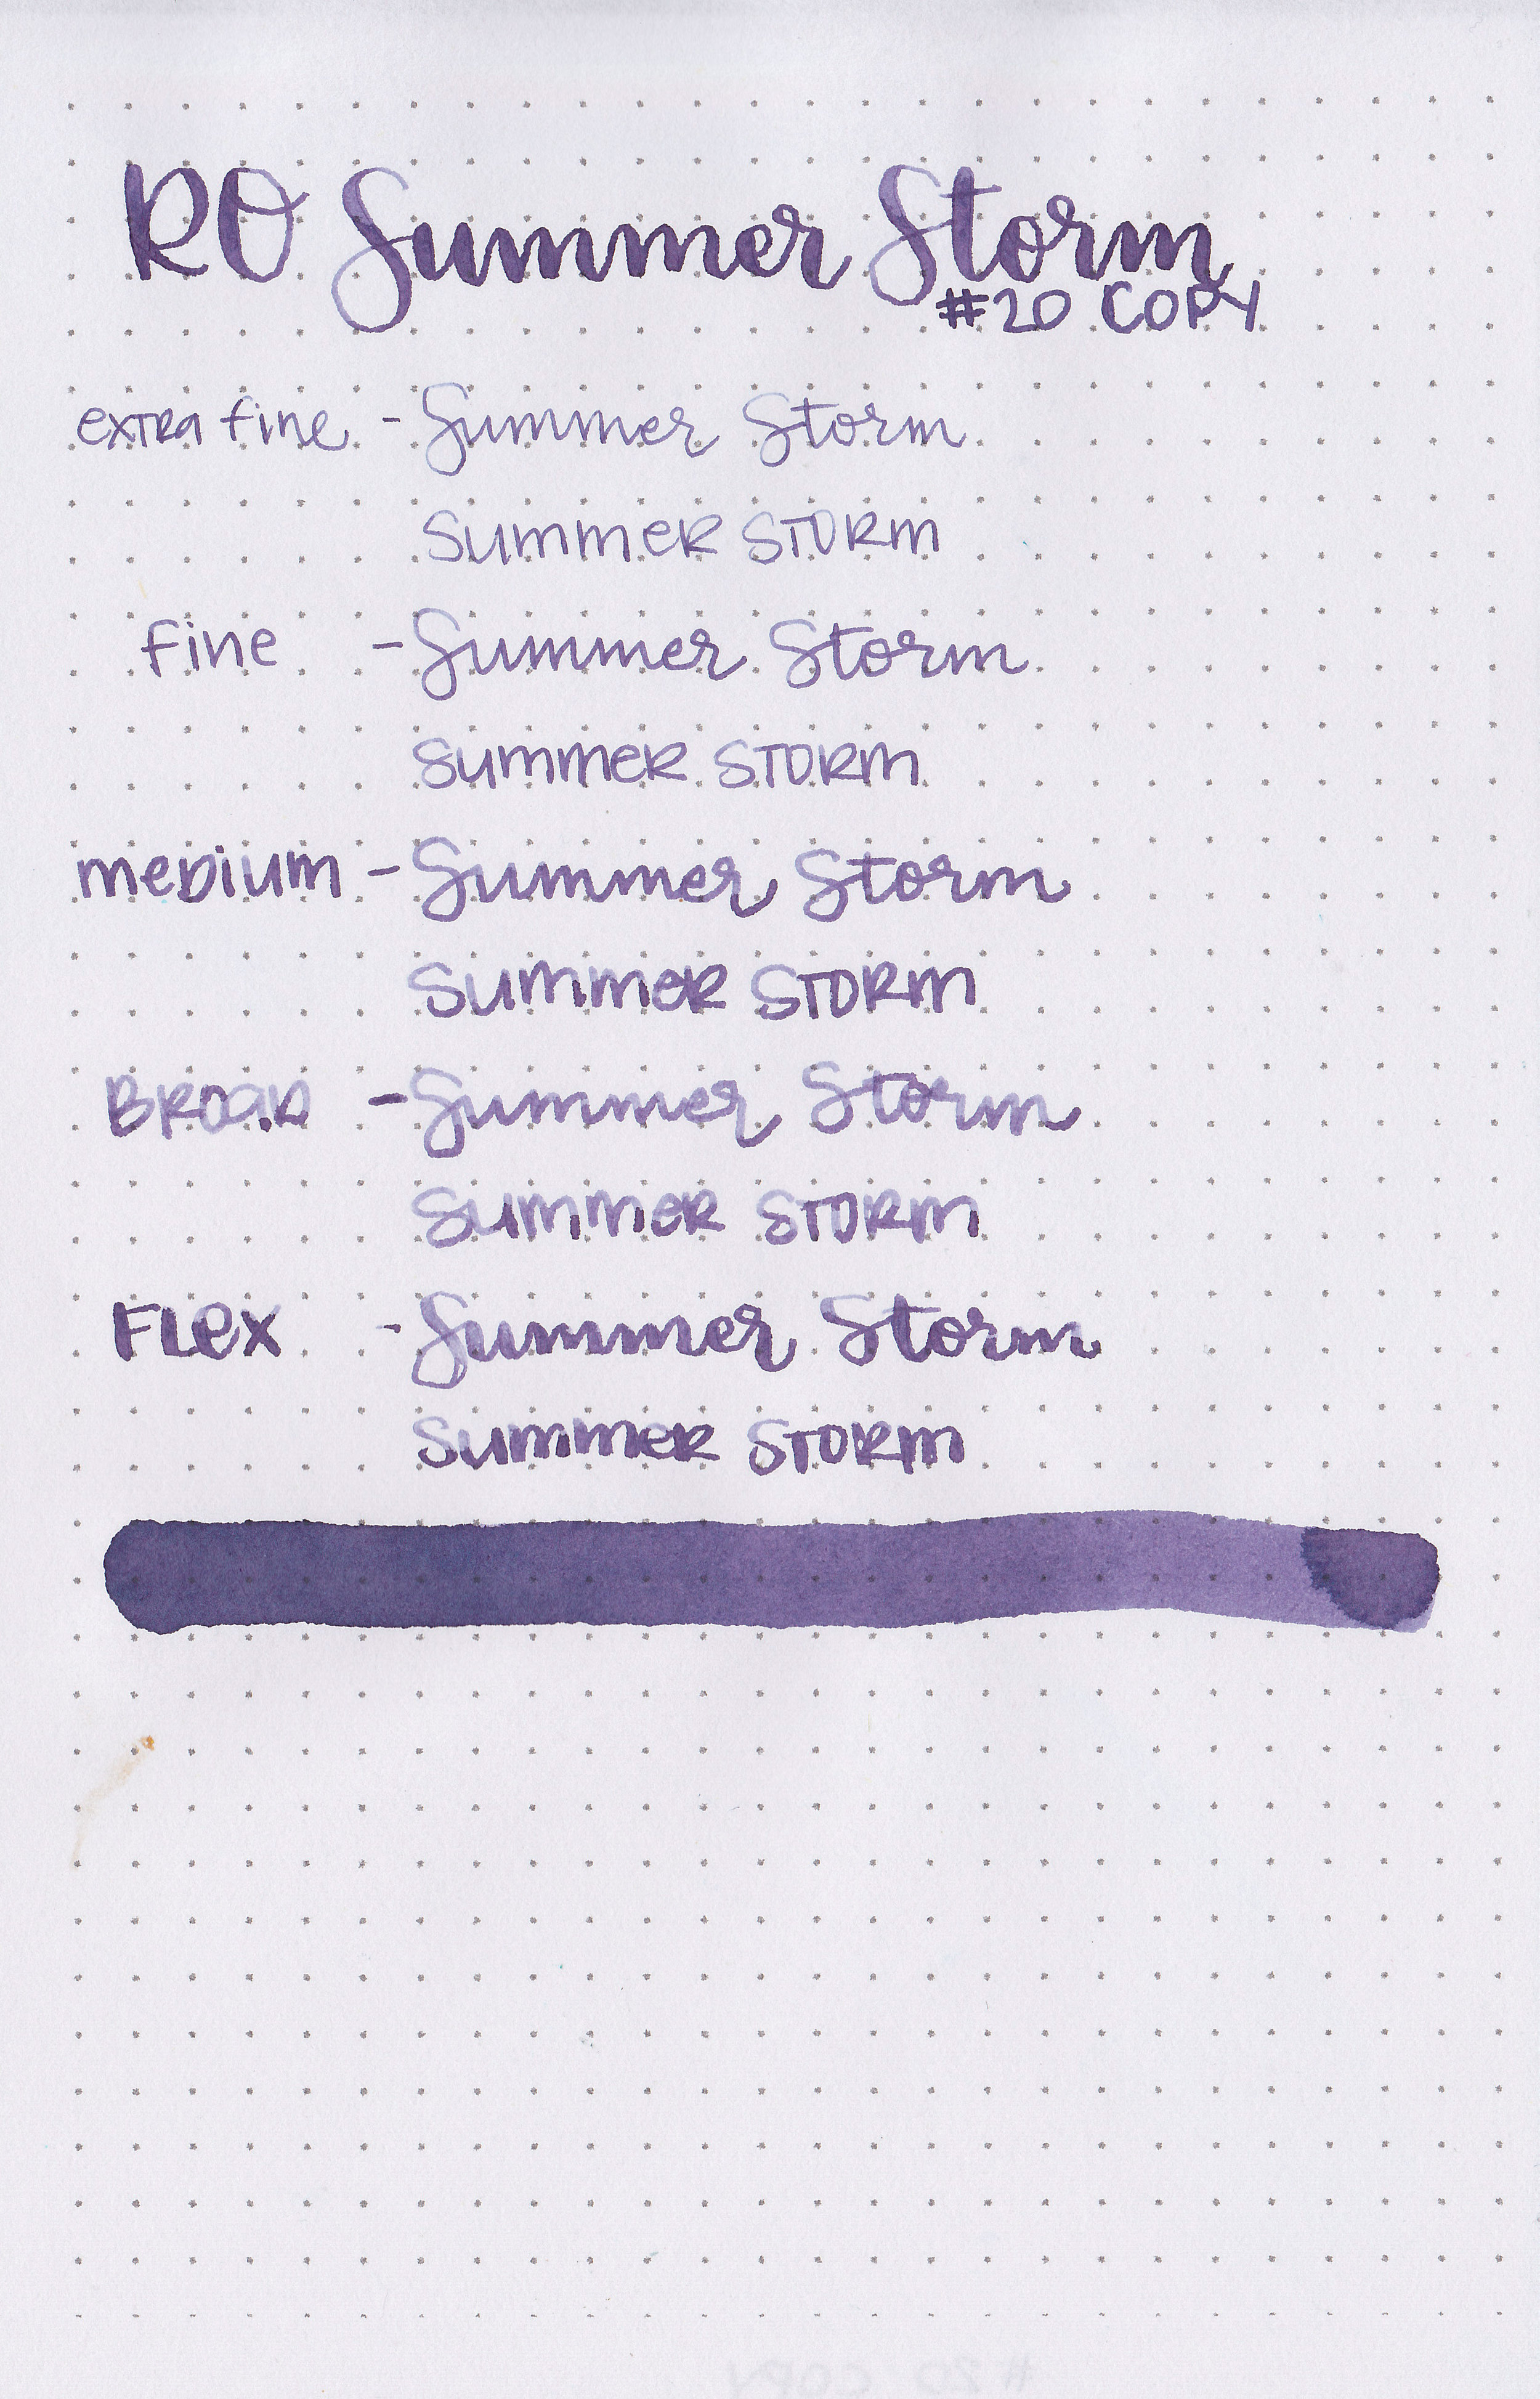 RO Summer Storm
#20 COPY
extra fine - Summer Storm
Summer Storm
fine - Summer Storm
Summer Storm
medium - Summer Storm
Summer Storm
Broad - Summer Storm
Summer Storm
Flex - Summer Storm
Summer Storm
#20 COPY